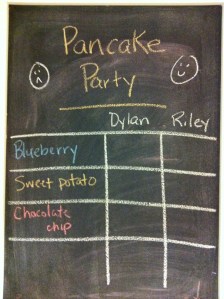 Pancake
Party
Dylan Riley
Blueberry
Sweet potato
Chocolate
chip